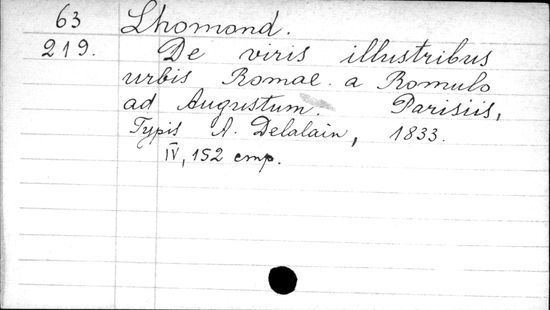 63 Lhomond.
219. De viris illustribus
urbis Romae a Romulo
ad Augustum. Parisiis,
Typis A. Delalain, 1833.
IV, 152 стр.